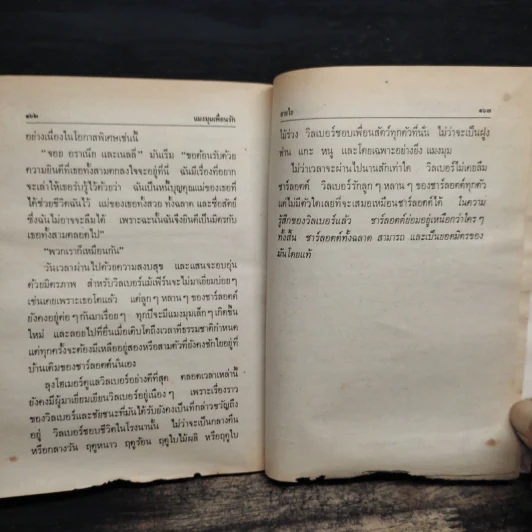 ๑๖๒ แมงมุมเพื่อนรัก
อย่างเนื่องในโอกาสพิเศษเช่นนี้
"จอย อราเนีย และเนลลี่" มันเริ่ม "ขอต้อนรับด้วย
ความยินดีที่เธอทั้งสามตกลงใจจะอยู่ที่นี่ ฉันมีเรื่องที่อยาก
จะเล่าให้เธอรับรู้ไว้ด้วยว่า ฉันเป็นหนี้บุญคุณแม่ของเธอที่
ได้ช่วยชีวิตฉันไว้ แม่ของเธอทั้งสวย ทั้งฉลาด และซื่อสัตย์
ซึ่งฉันไม่อาจจะลืมได้ เพราะฉะนั้นฉันจึงยินดีเป็นมิตรกับ
เธอทั้งสามตลอดไป"
"พวกเราก็เหมือนกัน"
วันเวลาผ่านไปด้วยความสงบสุข และแสนจะอบอุ่น
ด้วยมิตรภาพ สำหรับวิลเบอร์แม้เฟิร์นจะไม่มาเยี่ยมบ่อยๆ
เช่นเคยเพราะเธอโตแล้ว แต่ลูกๆ หลานๆ ของชาร์ลอตต์
ยังคงอยู่ต่อๆ กันมาเรื่อยๆ ทุกปีจะมีแมงมุมเล็กๆ เกิดขึ้น
ใหม่ และลอยไปที่อื่นเมื่อเติบโตถึงเวลาที่ธรรมชาติกำหนด
แต่ทุกครั้งจะต้องมีเหลืออยู่สองหรือสามตัวที่ยังคงชักใยอยู่ที่
บ้านเดิมของชาร์ลอตต์นั่นเอง
ลุงโฮเมอร์ดูแลวิลเบอร์อย่างดีที่สุด ตลอดเวลาเหล่านี้
ยังคงมีผู้มาเยี่ยมเยียนวิลเบอร์อยู่เนืองๆ เพราะเรื่องราว
ของวิลเบอร์และชัยชนะที่มันได้รับยังคงเป็นที่กล่าวขวัญถึง
อยู่ วิลเบอร์ชอบชีวิตในโรงนานั้น ไม่ว่าจะเป็นกลางคืน
หรือกลางวัน ฤดูหนาว ฤดูร้อน ฤดูใบไม้ผลิ หรือฤดูใบ
สายใย ๑๖๓
ไม้ร่วง วิลเบอร์ชอบเพื่อนสัตว์ทุกตัวที่นั่น ไม่ว่าจะเป็นฝูง
ห่าน แกะ หนู และโดยเฉพาะอย่างยิ่ง แมงมุม
ไม่ว่าเวลาจะผ่านไปนานสักเท่าใด วิลเบอร์ไม่เคยลืม
ชาร์ลอตต์ วิลเบอร์รักลูกๆ หลานๆ ของชาร์ลอตต์ทุกตัว
แต่ไม่มีตัวใดเลยที่จะเสมอเหมือนชาร์ลอตต์ได้ ในความ
รู้สึกของวิลเบอร์แล้ว ชาร์ลอตต์ย่อมอยู่เหนือกว่าใครๆ
ทั้งสิ้น ชาร์ลอตต์ทั้งฉลาด สามารถ และเป็นยอดมิตรของ
มันโดยแท้